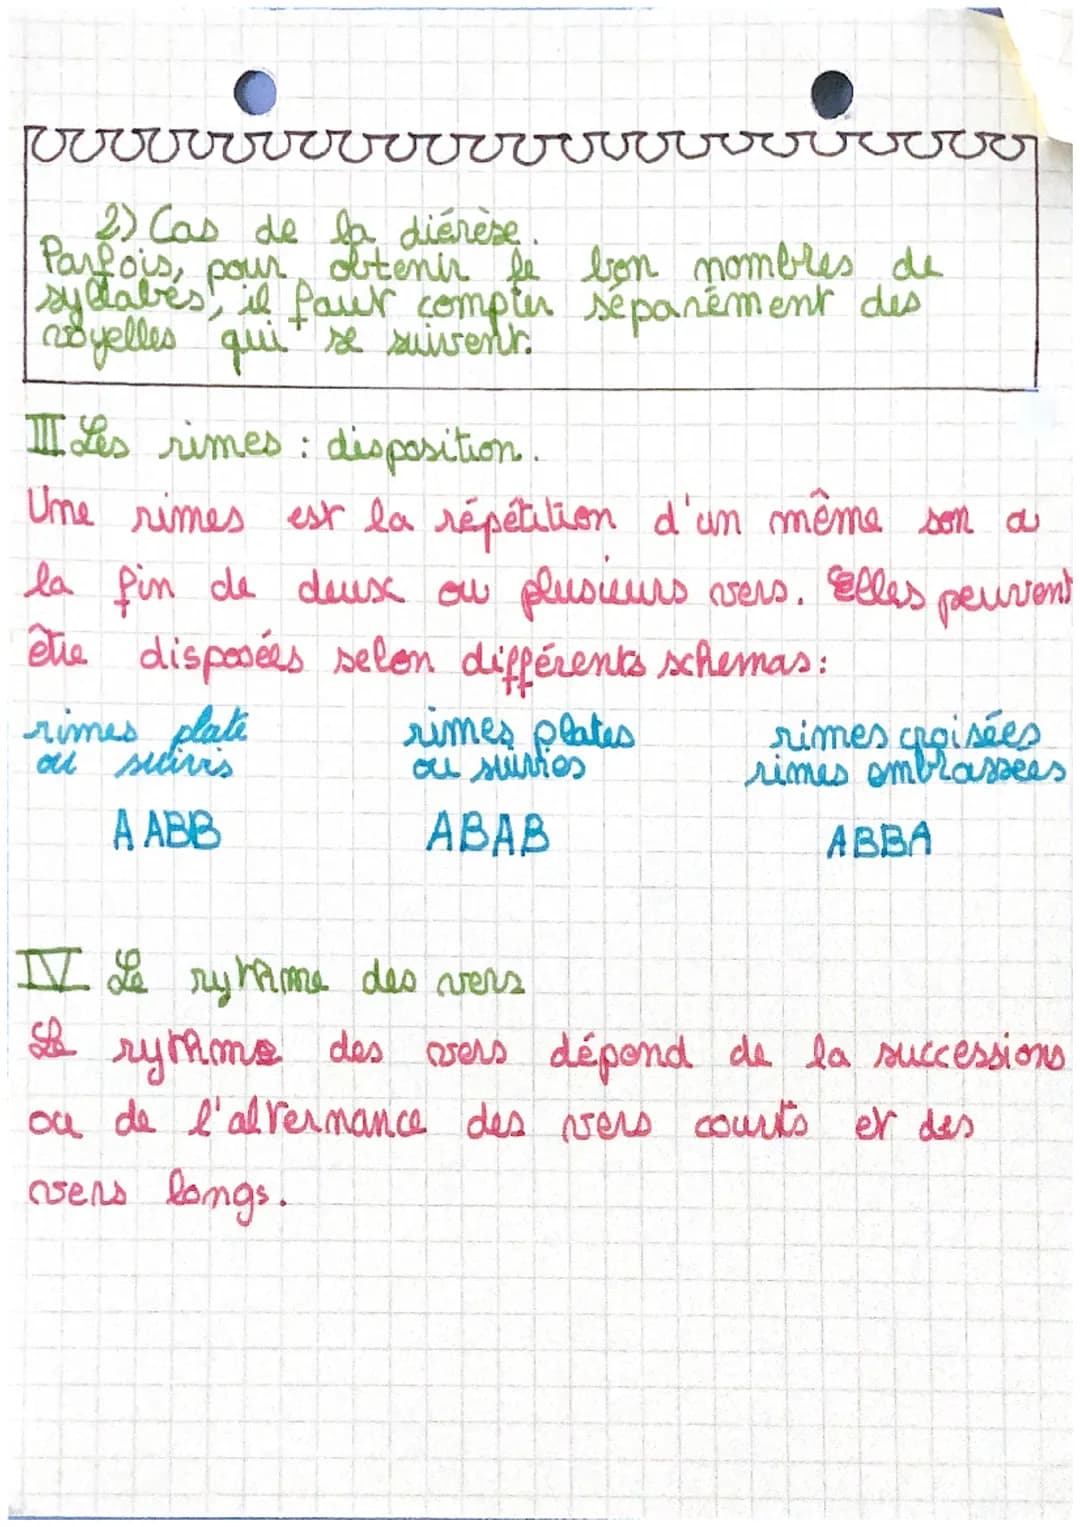 2) Cas de la diérèse.
Parfois, pour obtenir le bon nombres de
syllabes, il faut compter séparément des
voyelles qui se suivent.
III Les rimes : disposition.
Une rimes est la répétition d'un même son a
la fin de deux ou plusieurs vers. Elles peuvent
être disposées selon différents schemas:
rimes plate rimes plates rimes croisées
ou suivis ou suivies rimes embrassées
AABB ABAB ABBA
IV Le rythme des vers
Le rythme des vers dépend de la successions
ou de l'alternance des vers courts et des
vers longs.